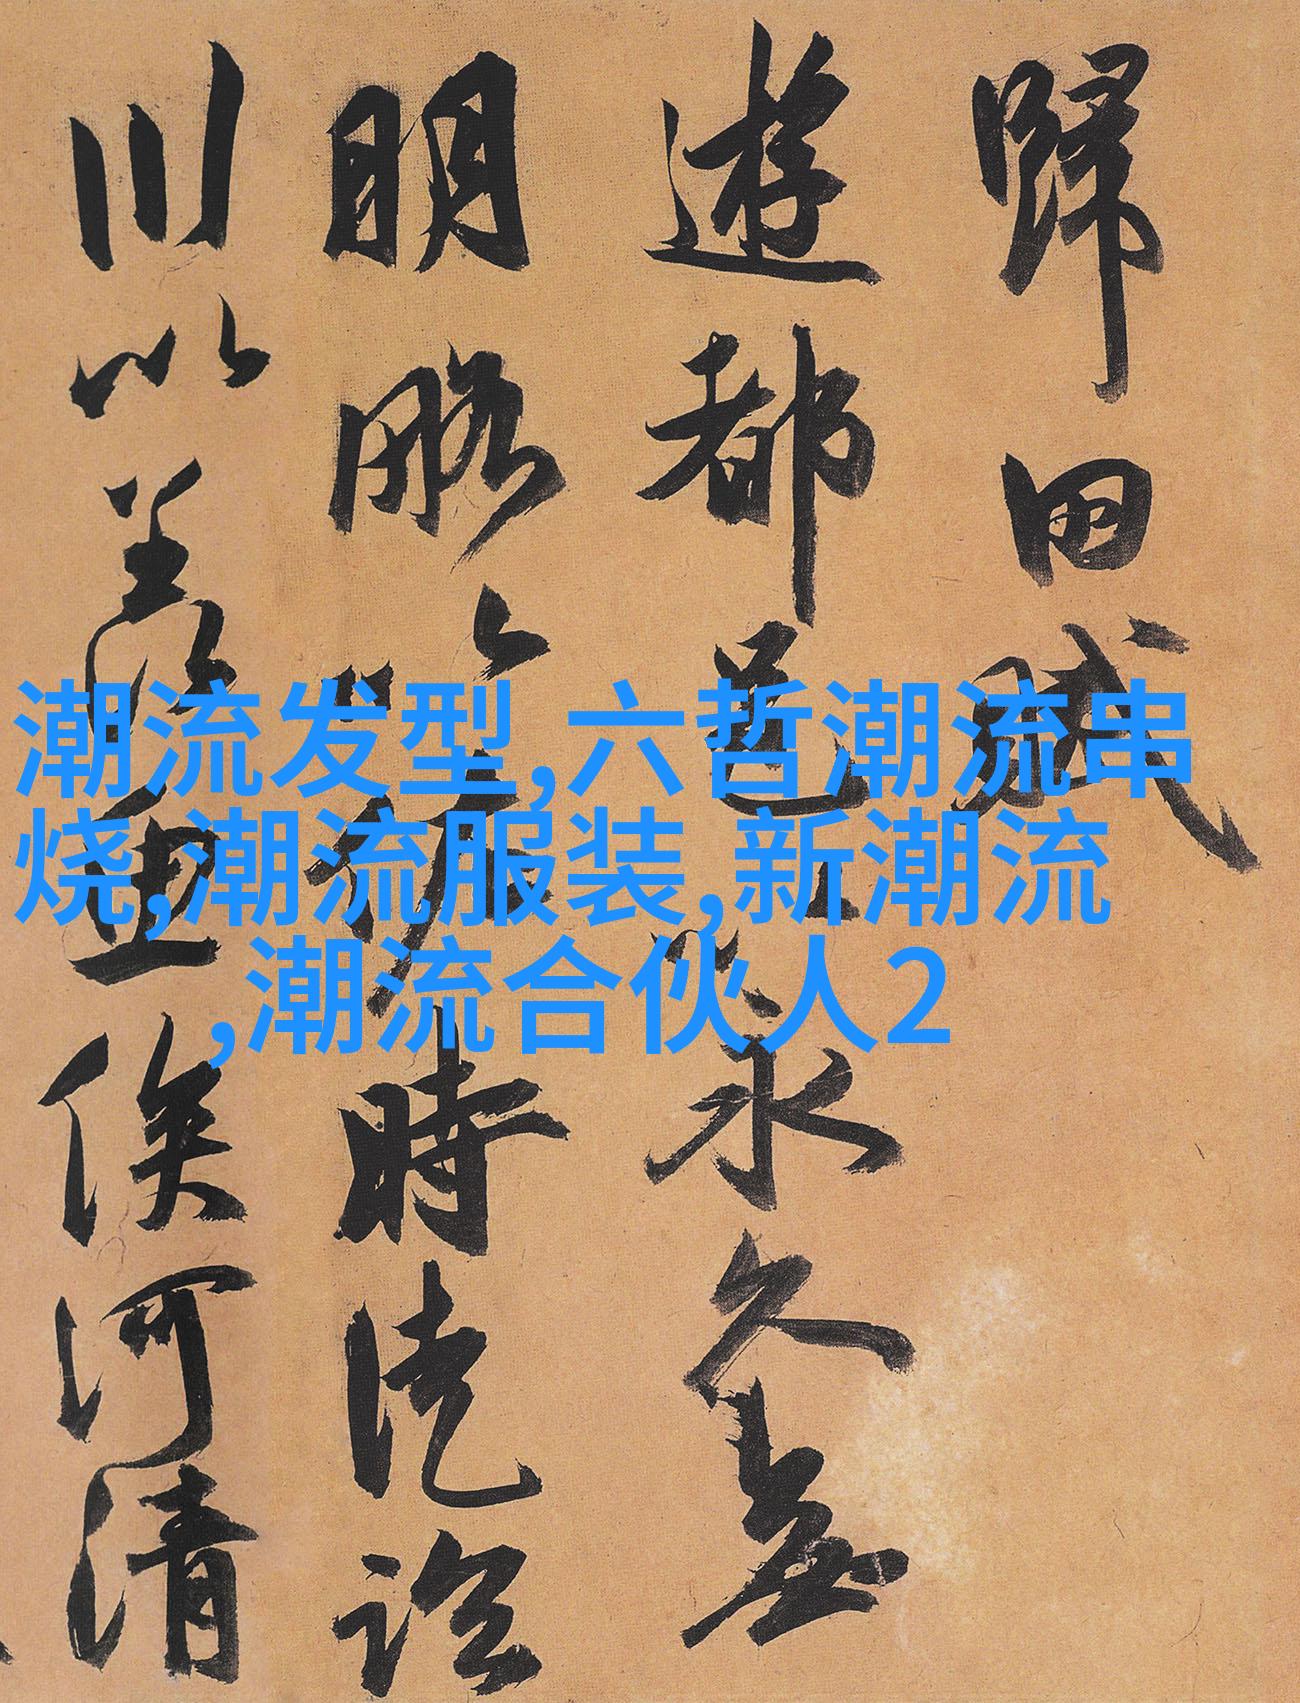 歸田賦
遊都邑以永久無
明略以佐時徒臨
川以羨魚俟河清
潮流发型,六哲潮流串
烧,潮流服装,新潮流
,潮流合伙人2